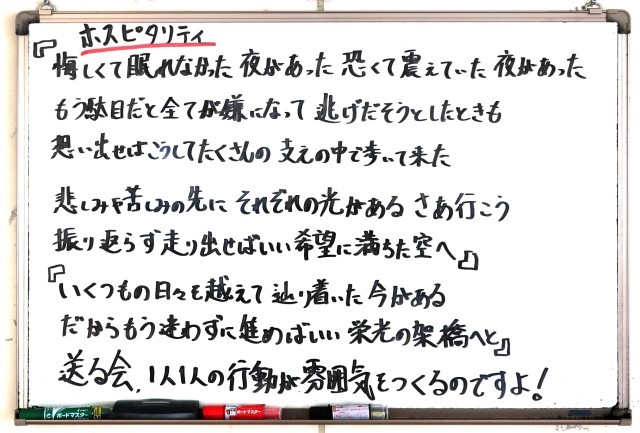 ホスピタリティ
『悔しくて眠れなかった 夜があった 恐くて震えていた 夜があった
もう駄目だと全てが嫌になって 逃げだそうとしたときも
想い出せばこうしてたくさんの 支えの中で歩いて来た
悲しみや苦しみの先に それぞれの光がある さあ行こう
振り返らず走り出せばいい 希望に満ちた空へ』
『いくつもの日々を越えて 辿り着いた 今がある
だからもう迷わずに進めばいい 栄光の架橋へと』
送る会、1人1人の行動が雰囲気をつくるのですよ!
ボードマスター
ボードマスター